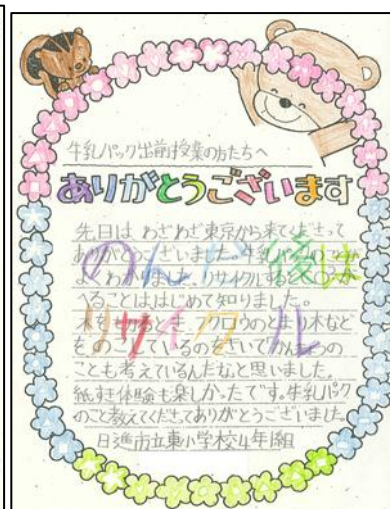 牛乳パック出前授業の方たちへ
ありがとうございます
先日は わざわざ東京から来てくださって
ありがとうございました。牛乳パックのことが
よくわかりました。リサイクルすると
へることははじめて知りました。
木を切るとき、フクロウのとまり木など
をのこしているのをきいてかんきょうの
ことも考えているんだなと思いました。
紙すき体験も楽しかったです。牛乳パック
のこと教えてくださってありがとうございました。
日進市立東小学校4年1組
のんだ後は
リサイクル